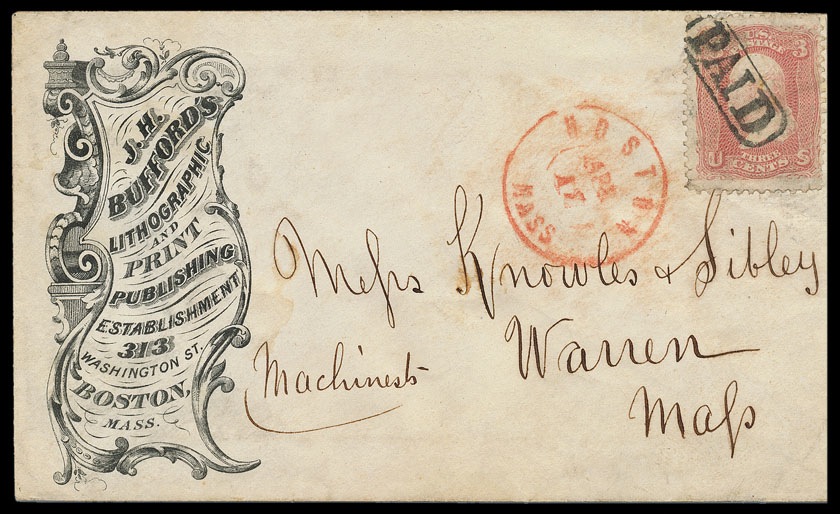 J. H.
BUFFORD'S
LITHOGRAPHIC
AND
PRINT
PUBLISHING
ESTABLISHMENT
313
WASHINGTON ST.
BOSTON,
MASS.
BOSTON
MASS
APR
17
U.S.
POSTAGE
3
PAID
U S
THREE
CENTS
Meſsrs Knowles & Sibley
Machinests
Warren
Maſs